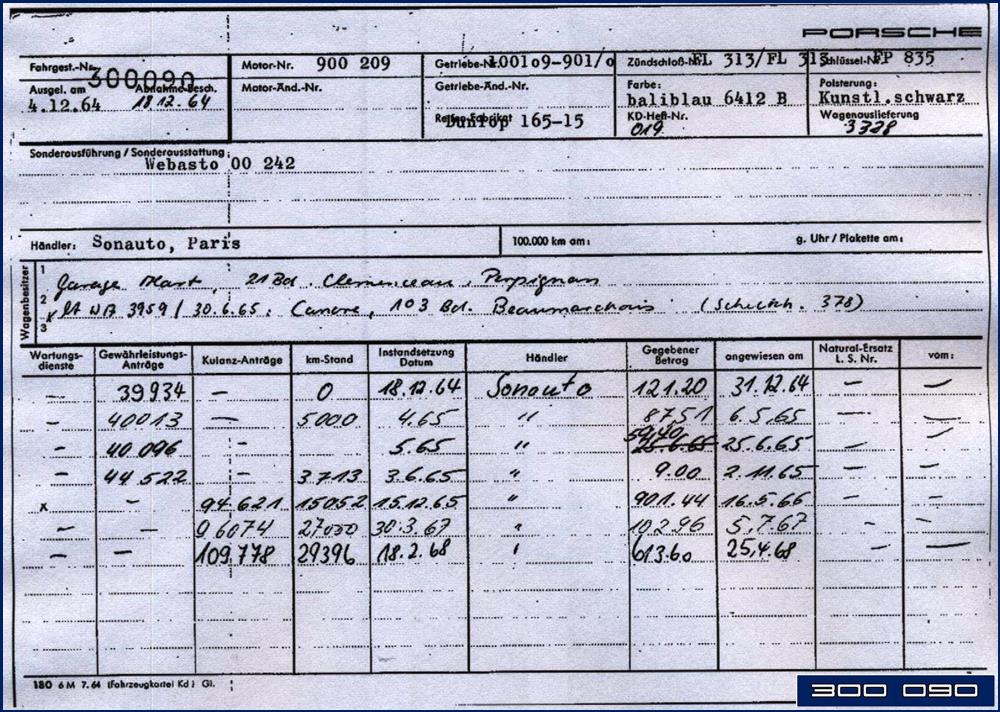 PORSCHE
Fahrgest.-Nr. 300090 Motor-Nr. 900 209 Getriebe-Nr. 100109-901/0 Zündschloß-Nr. FL 313/FL 313 Schlüssel-Nr. FP 835
Ausgel. am 4.12.64 Abnahme-Besch. 18 12. 64 Motor-Änd.-Nr. Getriebe-Änd.-Nr. Farbe: baliblau 6412 B Polsterung: Kunstl.schwarz
Reifen-Fabrikat Dunlop 165-15 KD-Heft-Nr. 019 Wagenauslieferung 3328
Sonderausführung / Sonderausstattung: Webasto 00 242
Händler: Sonauto, Paris 100.000 km am: g. Uhr / Plakette am:
Wagenbesitzer
1 Garage 21 Bd. Clemenceau, Perpignan
2 lt WA 3959 / 30.6.65: 103 Bd. Beaumarchais 378)
3
Wartungsdienste Gewährleistungs-Anträge Kulanz-Anträge km-Stand Instandsetzung Datum Händler Gegebener Betrag angewiesen am Natural-Ersatz L. S. Nr. vom:
— 39934 — 0 18.12.64 Sonauto 121.20 31.12.64 — —
— 40013 — 5000 4.65 " 87.51 6.5.65 — —
— 40096 - 5.65 " 59,40 25.6.65 25.6.65 — —
— 44 522 - 3713 3.6.65 " 9.00 2.11.65 — —
x - 94 621 15052 15.12.65 " 901.44 16.5.66 — —
— — 96074 27000 30.3.67 " 102.96 5.7.67 - —
— — 109.778 29396 18.2.68 " 613.60 25.4.68 — —
180 6 M 7. 64 (Fahrzeugkartei Kd) Gl.
300 090